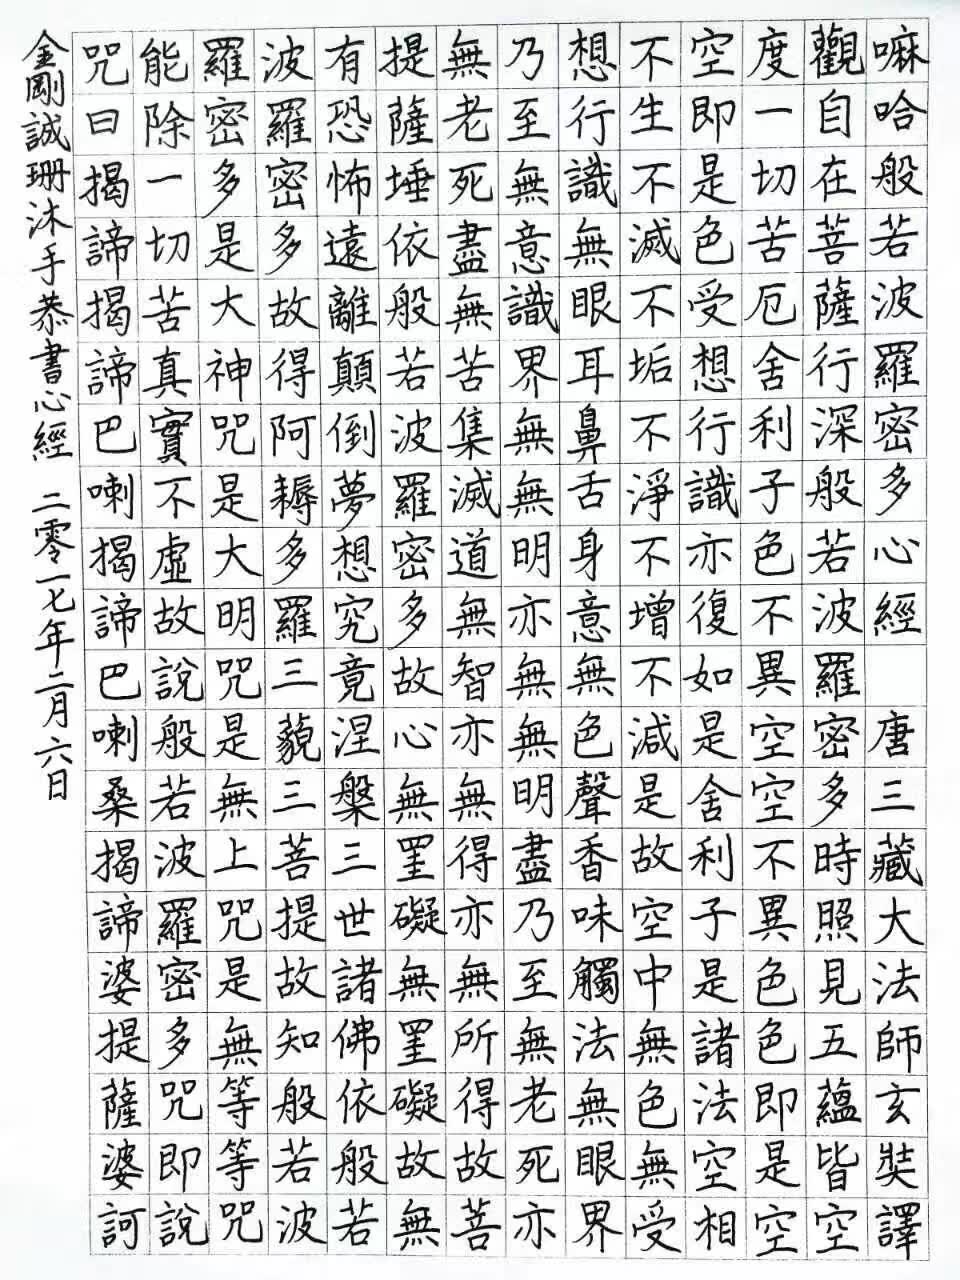 嘛哈般若波羅密多心經 唐三藏大法師玄奘譯
觀自在菩薩行深般若波羅密多時照見五蘊皆空
度一切苦厄舍利子色不異空空不異色色即是空
空即是色受想行識亦復如是舍利子是諸法空相
不生不滅不垢不淨不增不減是故空中無色無受
想行識無眼耳鼻舌身意無色聲香味觸法無眼界
乃至無意識界無無明亦無無明盡乃至無老死亦
無老死盡無苦集滅道無智亦無得亦無所得故菩
提薩埵依般若波羅密多故心無罣礙無罣礙故無
有恐怖遠離顛倒夢想究竟涅槃三世諸佛依般若
波羅密多故得阿耨多羅三藐三菩提故知般若波
羅密多是大神咒是大明咒是無上咒是無等等咒
能除一切苦真實不虛故說般若波羅密多咒即說
咒曰揭諦揭諦巴喇揭諦巴喇桑揭諦婆提薩婆訶
金剛誠珊沐手恭書心經 二零一七年二月六日